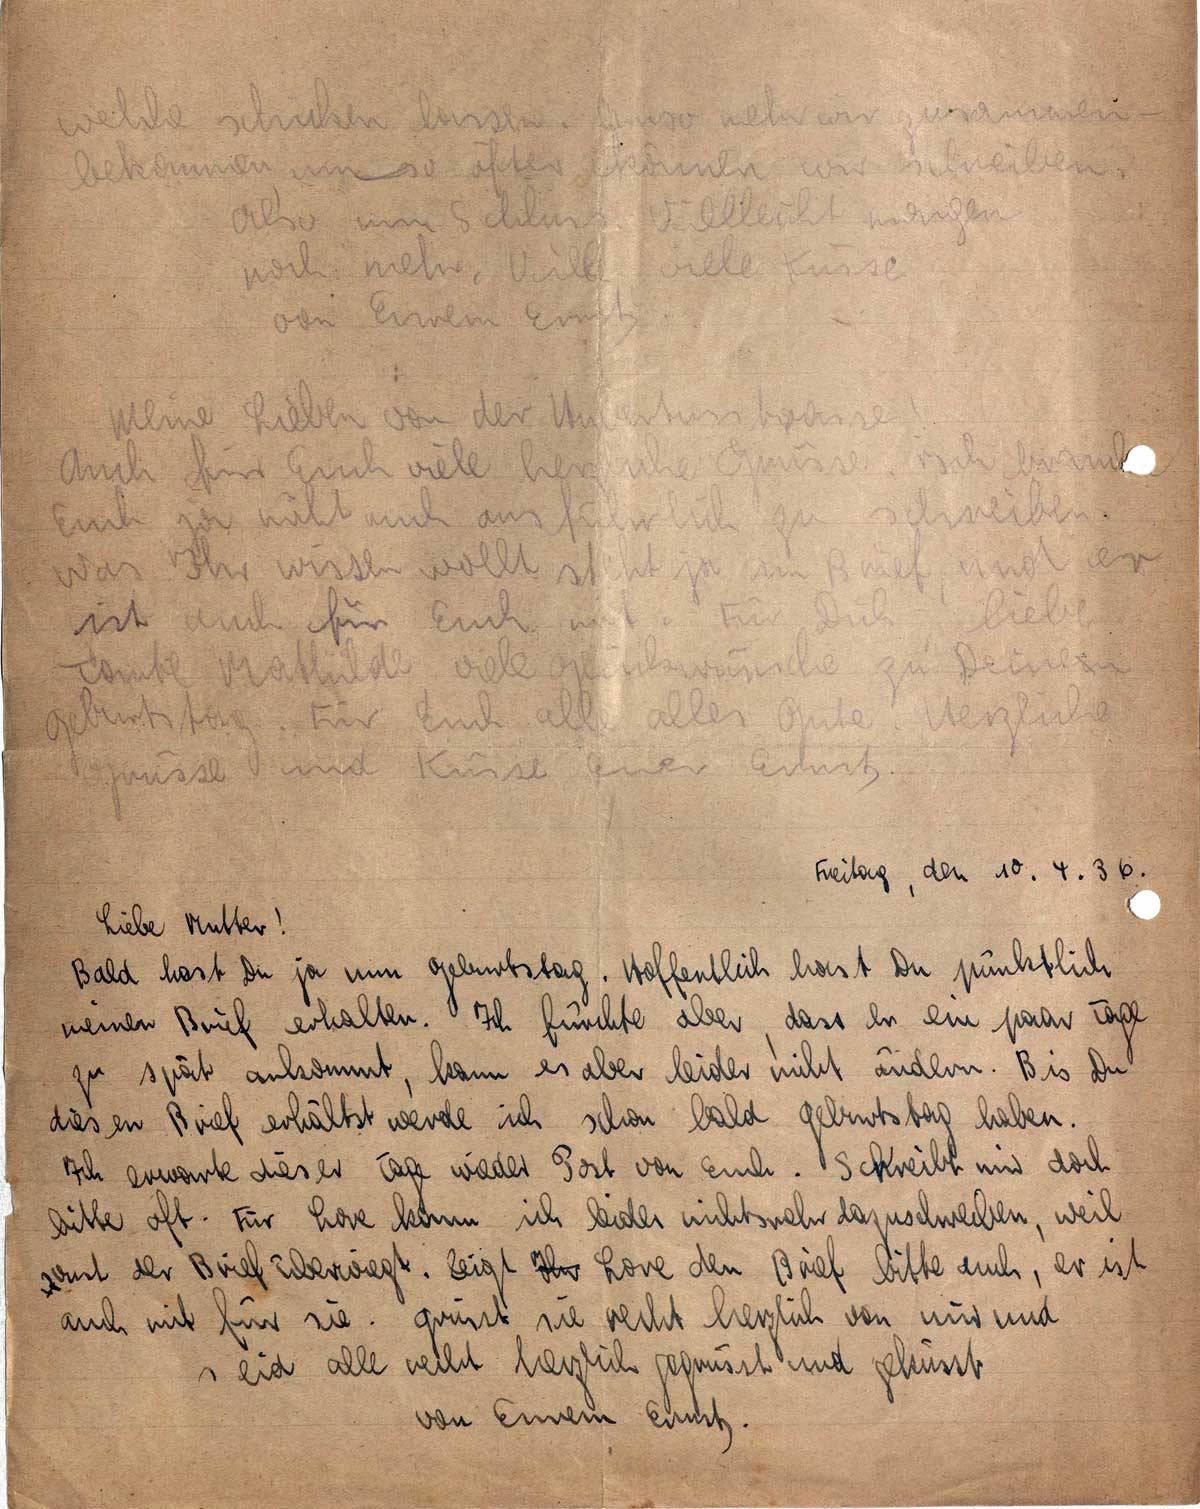 welche schicken lassen. Umso mehr wir zusammen-
bekommen, um so öfter können wir schreiben.
Also nun Schluss. Vielleicht morgen
noch mehr. Viele viele Küsse
von Eurem Ernst.
Meine Lieben von der
Auch für Euch viele herzliche Grüsse. Ich brauche
Euch ja nicht auch ausführlich zu schreiben.
Was Ihr wissen wollt steht ja im Brief, und er
ist auch für Euch mit. Für Dich, liebe
Tante Mathilde viele Glückwünsche zu Deinem
Geburtstag. Für Euch alle alles Gute. Herzliche
Grüsse und Küsse Euer Ernst.
Freitag, den 10. 4. 36.
Liebe Mutter!
Bald hast Du ja nun Geburtstag. Hoffentlich hast Du pünktlich
meinen Brief erhalten. Ich fürchte aber, dass er ein paar Tage
zu spät ankommt, kann es aber leider nicht ändern. Bis Du
diesen Brief erhältst werde ich schon bald Geburtstag haben.
Ich erwarte dieser Tage wieder Post von Euch. Schreibt mir doch
bitte oft. Für Lore kann ich leider nichtsmehr dazuschreiben, weil
sonst der Brief überwiegt. Zeigt Lore den Brief bitte auch, er ist
auch mit für sie. Grüsst sie recht herzlich von mir und
seid alle recht herzlich gegrüsst und geküsst
von Eurem Ernst.